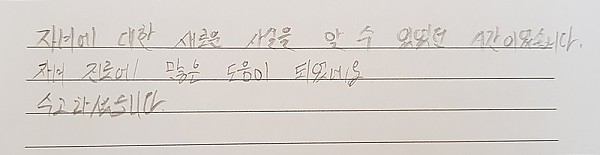 자녀에 대한 새로운 사실을 알 수 있었던 시간이었습니다.
자녀 진로에 많은 도움이 되었네요
수고하셨습니다.